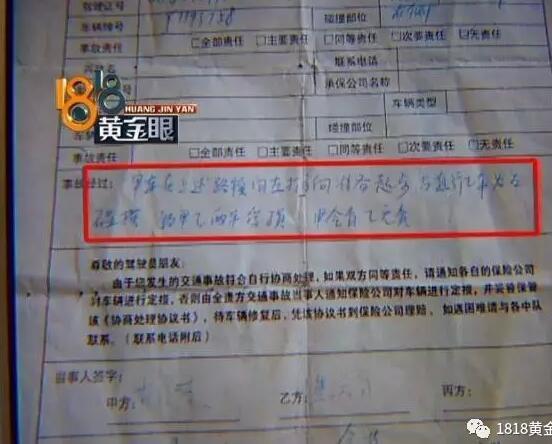 驾驶证号
碰撞部位
车辆牌号
事故责任 □全部责任 □主要责任 □同等责任 □次要责任 □无责任
联系电话
承保公司名称
1818
HUANG JIN YAN
黄金眼
车辆类型
碰撞部位
事故责任 □全部责任 □主要责任 □同等责任 □次要责任 □无责任
事故经过: 甲车在上述路段 左打方向 起步与直行乙车发生
碰撞 甲乙两车受损 甲全责乙无责
尊敬的驾驶员朋友:
由于您发生的交通事故符合自行协商处理,如果双方同等责任,请通知各自的保险公司
对车辆进行定损,否则由全责方交通事故当事人通知保险公司对车辆进行定损,并妥善保管
该《协商处理协议书》,待车辆修复后,凭该协议书到保险公司理赔。如遇困难请与各中队
联系。(联系电话附后)
当事人签字:
甲方: 乙方: 丙方:
1818黄金